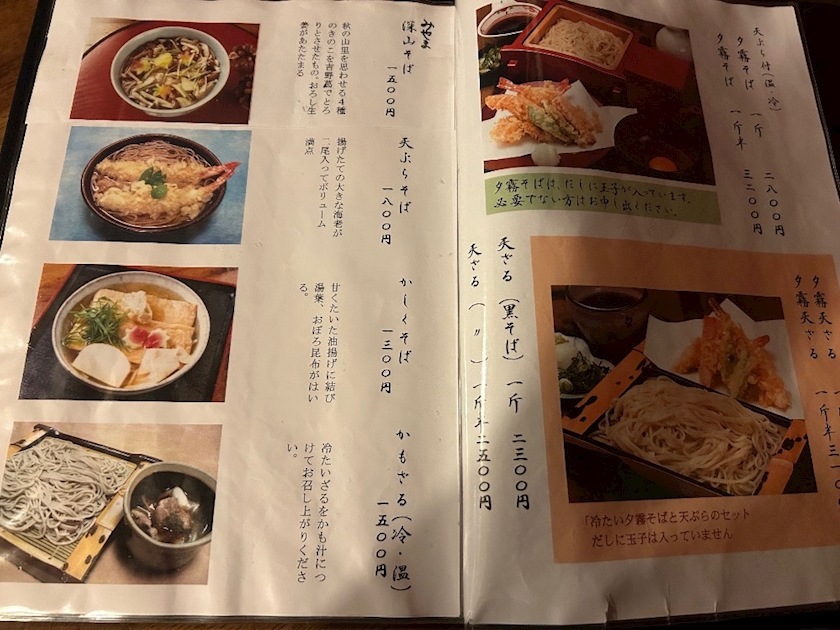 みやま
深山そば
一五〇〇円
秋の山里を思わせる4種
のきのこを吉野葛でとろ
りとさせたもの。おろし生
姜があたたまる
天ぷらそば
一八〇〇円
揚げたての大きな海老が
二尾入ってボリューム
満点
かしくそば
一三〇〇円
甘くたいた油揚げに結び
湯葉、おぼろ昆布がはい
る。
かもざる(冷・温)
一五〇〇円
冷たいざるをかも汁につ
けてお召し上がりくださ
い。
天ぷら付(温・冷)
夕霧そば 一斤 二八〇〇円
夕霧そば 一斤半 三二〇〇円
夕霧そばは、だしに玉子が入っています。
必要でない方はお申し出ください。
夕霧天ざる 一斤
夕霧天ざる 一斤半 三一〇
天ざる(黒そば)一斤 二三〇〇円
天ざる( 〃 )一斤半 二五〇〇円
「冷たい夕霧そばと天ぷらのセット
だしに玉子は入っていません